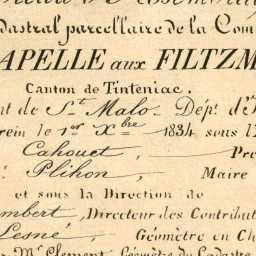 adastral parcellaire de la Com
APELLE aux FILTZM
Canton de Tinteniac.
nt de St. Malo. Dépt. d'
rein le 1er Xbre 1834 sous l
Cahouet, Pré
Plihon, Maire
et sous la Direction de
mbert, Directeur des Contribut
Lesné, Géomètre en Ch
Mr. Clement, Géomètre du Cadastre